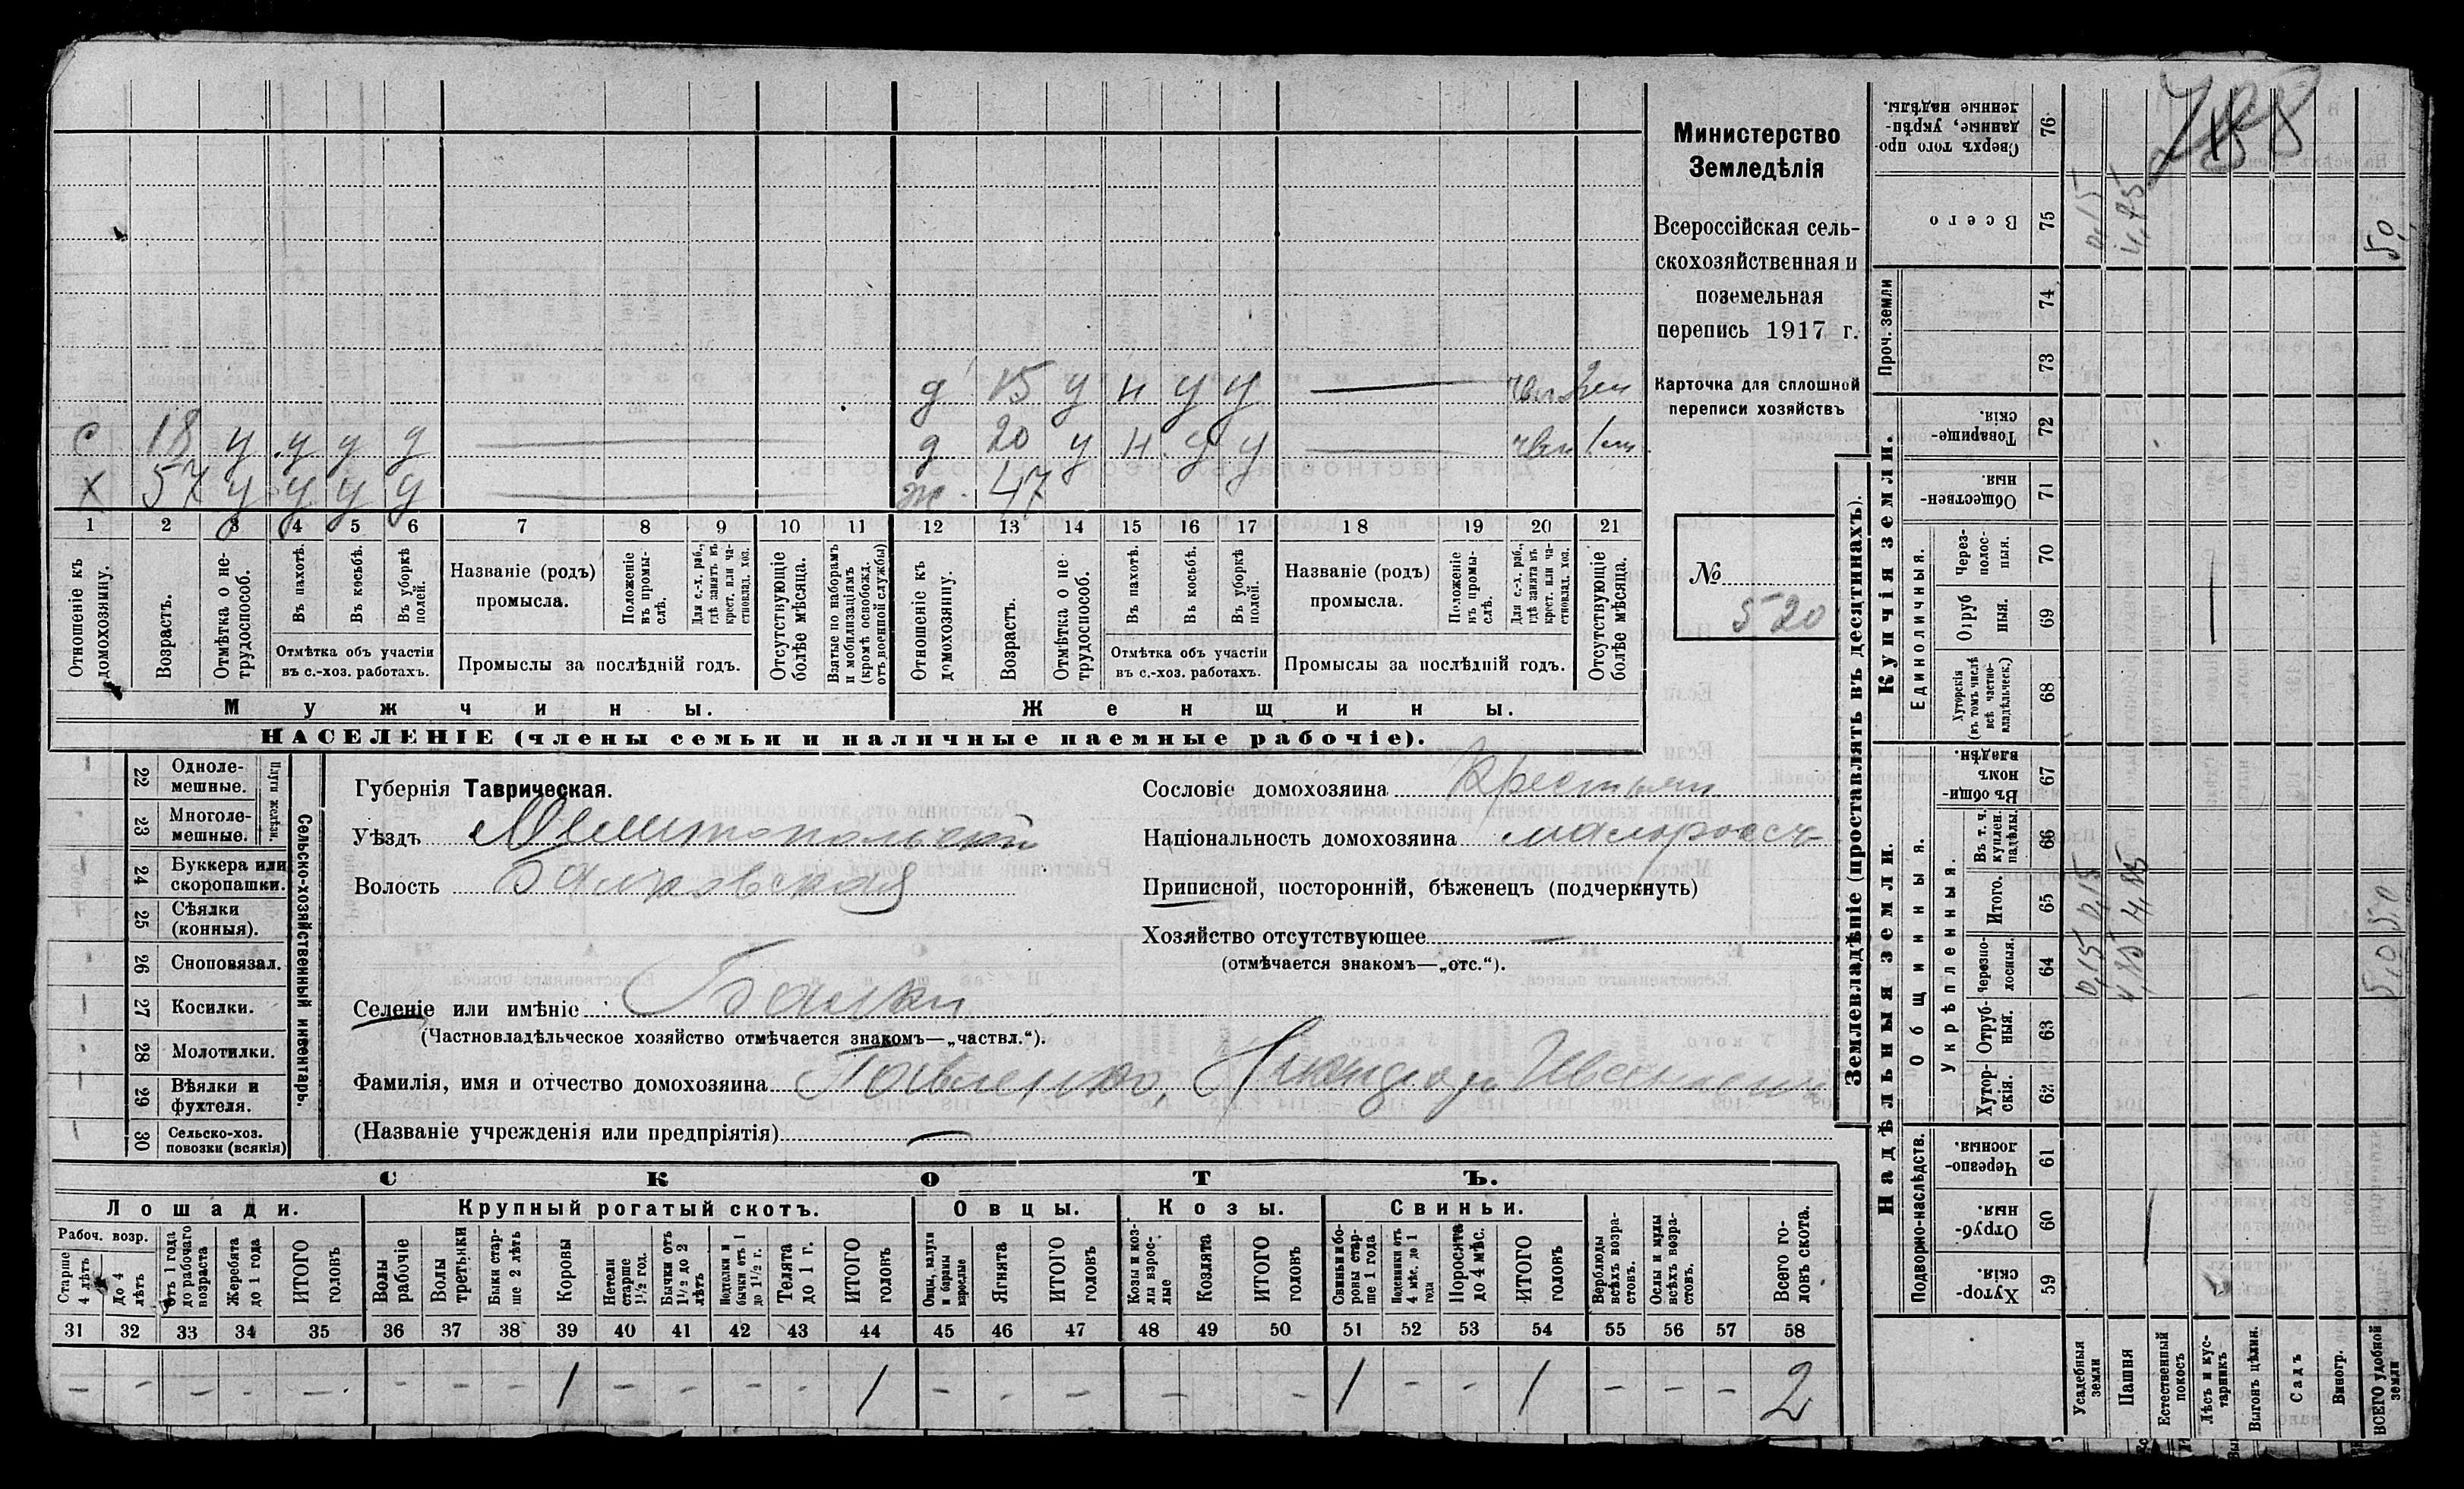 788
Министерство
Земледѣлія
Всероссійская сель-
скохозяйственная и
поземельная
перепись 1917 г.
Карточка для сплошной
переписи хозяйствъ
№
520
д 15 у н у у — 2 м
с 18 у у у у — д 20 у н у у — 1 м
х 57 у у у у — ж. 47
1 2 3 4 5 6 7 8 9 10 11 12 13 14 15 16 17 18 19 20 21
Отношеніе къ домохозяину.
Возрастъ.
Отмѣтка о не-трудоспособ.
Въ пахотѣ.
Въ косьбѣ.
Въ уборкѣ полей.
Отмѣтка объ участіи
въ с.-хоз. работахъ.
Названіе (родъ)
промысла.
Положеніе въ промы-слѣ.
Для с.-х. раб., гдѣ занятъ въ крест. или ча-стновлад. хоз.
Промыслы за послѣдній годъ.
Отсутствующіе болѣе мѣсяца.
Взятые по наборамъ и мобилизаціямъ (кромѣ освобожд. отъ военной службы)
Отношеніе къ домохозяину.
Возрастъ.
Отмѣтка о не трудоспособ.
Въ пахотѣ.
Въ косьбѣ.
Въ уборкѣ полей.
Отмѣтка объ участіи
въ с.-хоз. работахъ.
Названіе (родъ)
промысла.
Положеніе въ промы-слѣ.
Для с.-х. раб., гдѣ занята въ крест. или ча-стновлад. хоз.
Промыслы за послѣдній годъ.
Отсутствующіе болѣе мѣсяца.
Мужчины.
Женщины.
НАСЕЛЕНІЕ (члены семьи и наличные наемные рабочіе).
22 Одноле-мешные.
23 Многоле-мешные.
Плуги желѣзн.
24 Буккера или скоропашки.
25 Сѣялки (конныя).
26 Сноповязал.
27 Косилки.
28 Молотилки.
29 Вѣялки и фухтеля.
30 Сельско-хоз. повозки (всякія)
Сельско-хозяйственный инвентарь.
Губернія Таврическая.
Уѣздъ Мелитопольскій
Волость Балковская
Селеніе или имѣніе Балки
(Частновладѣльческое хозяйство отмѣчается знакомъ—„частвл.“).
Фамилія, имя и отчество домохозяина
(Названіе учрежденія или предпріятія) —
Сословіе домохозяина Крестьян
Національность домохозяина малороссъ
Приписной, посторонній, бѣженецъ (подчеркнуть)
Хозяйство отсутствующее —
(отмѣчается знакомъ—„отс.“).
СКОТЪ.
Лошади.
Крупный рогатый скотъ.
Овцы.
Козы.
Свиньи.
Рабоч. возр.
Старше 4 лѣтъ
До 4 лѣтъ
Отъ 1 года до рабочаго возраста
Жеребята до 1 года
ИТОГО головъ
Волы рабочіе
Волы третьяки
Быки стар-ше 2 лѣтъ
Коровы
Нетели старше 1½ год.
Бычки отъ 1½ до 2 лѣтъ
Подтелки и бычки отъ 1 до 1½ г.
Телята до 1 г.
ИТОГО головъ
Овцы, валухи и бараны взрослые
Ягнята
ИТОГО головъ
Козы и коз-лы взрос-лые
Козлята
ИТОГО головъ
Свиньи и бо-ровы стар-ше 1 года
Подсвинки отъ 4 мѣс. до 1 года
Поросята до 4 мѣс.
ИТОГО головъ
Верблюды всѣхъ возра-стовъ.
Ослы и мулы всѣхъ возра-стовъ.
Всего го-ловъ скота.
31 32 33 34 35 36 37 38 39 40 41 42 43 44 45 46 47 48 49 50 51 52 53 54 55 56 57 58
— — — — — — — — 1 — — — — 1 — — — — — 1 — — 1 — — — 2
Землевладѣніе (проставлять въ десятинахъ).
Надѣльныя земли.
Купчія земли.
Проч. земли
Подворно-наслѣдств.
Общинныя.
Укрѣпленныя.
Единоличныя.
59 Хутор-скія.
60 Отруб-ныя.
61 Черезпо-лосныя.
62 Хутор-скія.
63 Отруб-ныя.
64 Черезпо-лосныя.
65 Итого.
66 Въ т. ч. куплен. надѣлы.
67 Въ общи-номъ владѣн.
68 Хуторскія (въ томъ числѣ всѣ частно-владѣльческ.)
69 Отруб ныя.
70 Через-полос-ныя.
71 Обществен-ныя.
72 Товарище-скія.
73
74
75 Всего
76 Сверхъ того про-данные, укрѣп-ленные надѣлы.
Усадебныя земли 0,15 0,15 0,15
Пашня 4,85 4,85 4,85
Естественный покосъ
Лѣсъ и кус-тарникъ
Выгонъ цѣлин.
Садъ
Виногр.
ВСЕГО удобной земли 5,0 5,0 5,0